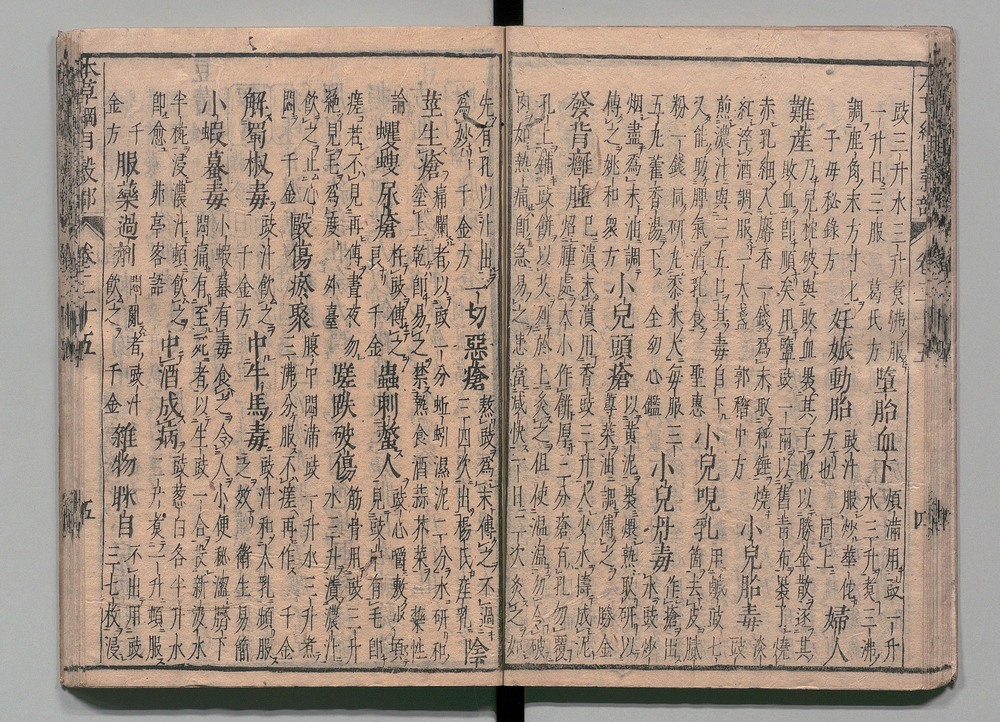 豉三升水三升煮沸服一升日三服 葛氏方 墮胎血下 煩滿用豉一升水三升煮三沸
調鹿角末方寸匕 子母秘錄方 妊娠動胎 豉汁服妙華佗方也 同上 婦人
難産 乃兒枕破與敗血裹其子也以勝金散逐其敗血即順矣用鹽豉一兩以舊青布裹了燒
赤乳細入麝香一錢爲末取秤錘燒紅淬酒調服一大盞 郭稽中方 小兒胎毒 淡豉
煎濃汁與三五口其毒自下又能助脾氣消乳食 聖惠 小兒哯乳 用鹹豉七箇去皮膩
粉一錢同研丸黍米大每服三五丸藿香湯下 全幼心鑑 小兒丹毒 作瘡出水豉炒
烟盡爲末油調傅之姚和衆方 小兒頭瘡 以黃泥裹煨熟取研以蓴菜油調傅之 勝金
發背癰腫 已潰未潰用香豉三升入少水擣成泥照腫處大小作餅厚三分瘡有孔勿覆
孔上鋪豉餅以艾列於上灸之但使温温勿令破
肉如熱痛即急易之患當減快一日二次灸之如
先有孔以汁出爲妙 千金方 一切惡瘡 熬豉爲末傅之不過三四次出楊氏産乳 陰
莖生瘡 痛爛者以豉一分蚯蚓濕泥二分水研和塗上乾即易之禁熱食酒蒜芥菜 藥性
論 蠼螋尿瘡 杜豉傅之良 千金 蟲刺螫人 豉心嚼敷少頃見豉中有毛即
瘥若不見再傅晝夜勿絕見毛爲度 外臺 蹉跌破傷 筋骨用豉三升水三升漬濃汁
飲之止心悶 千金 毆傷瘀聚 腹中悶滿豉一升水三升煮三沸分服不瘥再作 千金
解蜀椒毒 豉汁飲之 千金方 中牛馬毒 豉汁和人乳頻服之效 衛生易簡
小蝦蟇毒 小蝦蟇有毒食之令人小便秘澀臍下悶痛有至死者以生豉一合投新汲水
半椀浸濃汁頓飲之即愈 茆亭客語 中酒成病 豉葱白各半升水二升煮一升頓服
千金方 服藥過劑 悶亂者豉汁飲之 千金 雜物眯目 不出用豉三七枚浸
本草綱目穀部 卷二十五 五